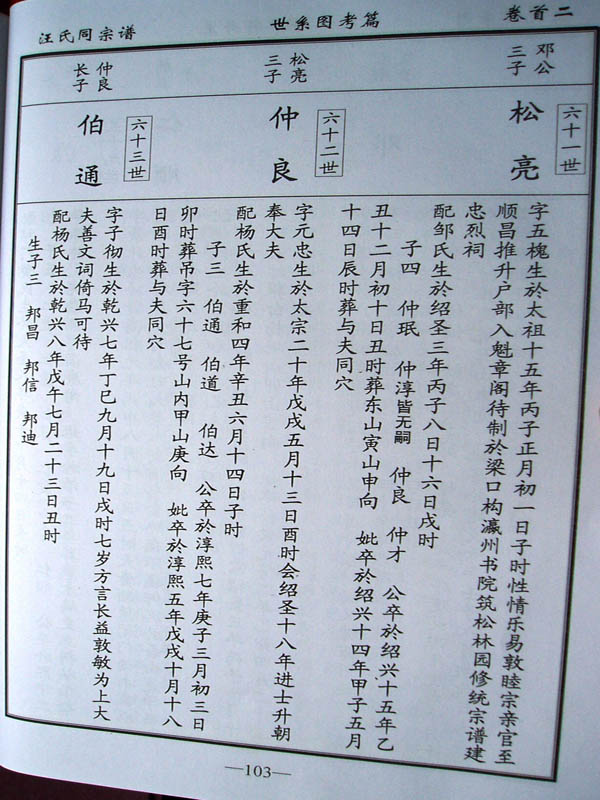 卷首二
世系图考篇
汪氏同宗谱
邓公
三子
六十一世
松亮
字五槐生於太祖十五年丙子正月初一日子时性情乐易敦睦宗亲官至
顺昌推升户部入魁章阁待制於梁口构瀛州书院筑松林园修统宗谱建
忠烈祠
配邹氏生於绍圣三年丙子八日十六日戌时
子四 仲珉 仲淳皆无嗣 仲良 仲才 公卒於绍兴十五年乙
丑十二月初十日丑时葬东山寅山申向 妣卒於绍兴十四年甲子五月
十四日辰时葬与夫同穴
松亮
三子
六十二世
仲良
字元忠生於太宗二十年戊戌五月十三日酉时会绍圣十八年进士升朝
奉大夫
配杨氏生於重和四年辛丑六月十四日子时
子三 伯通 伯道 伯达 公卒於淳熙七年庚子三月初三日
卯时葬吊字六十七号山内甲山庚向 妣卒於淳熙五年戊戌十月十八
日酉时葬与夫同穴
仲良
长子
六十三世
伯通
字子彻生於乾兴七年丁巳九月十九日戌时七岁方言长益敦敏为上大
夫善文词倚马可待
配杨氏生於乾兴八年戊午七月二十三日丑时
生子三 邦昌 邦信 邦迪
—103—